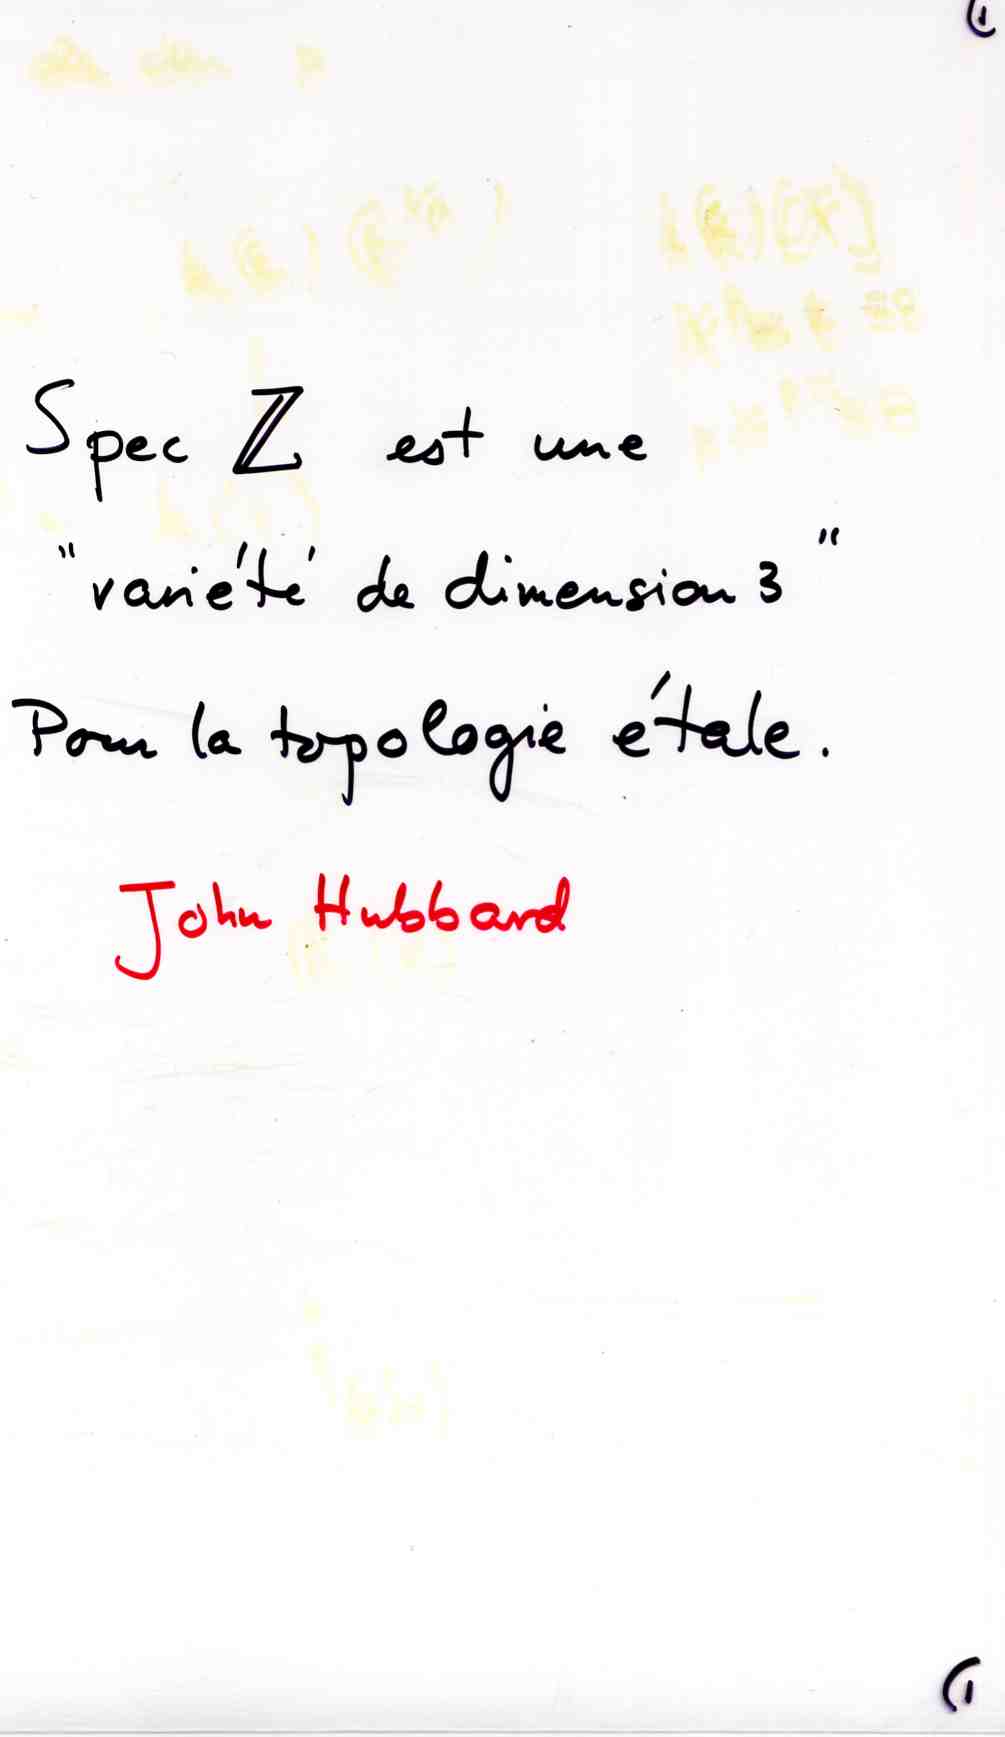 Spec ℤ est une
"variété de dimension 3"
Pour la topologie étale.
John Hubbard